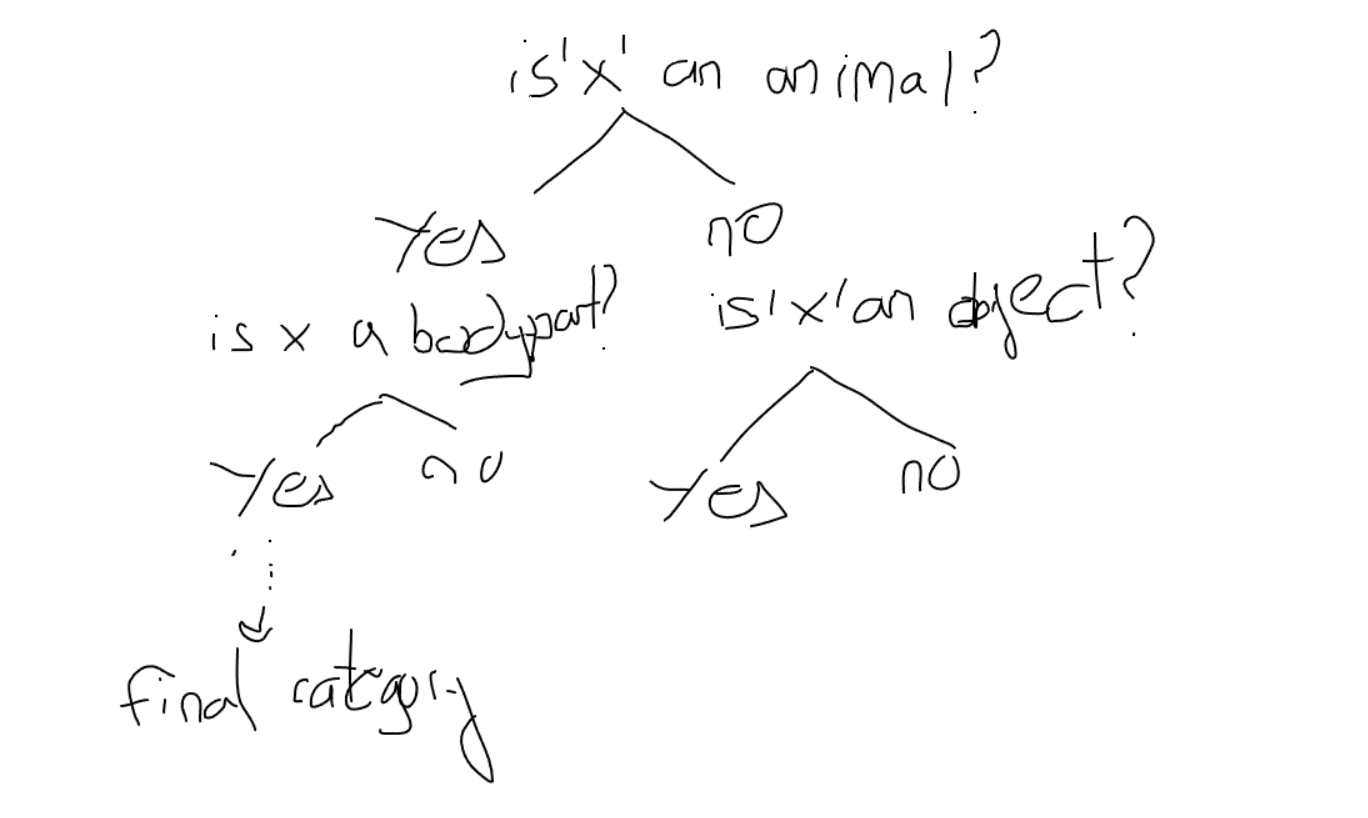 is 'x' an animal?
Yes
no
is x a bodypart?
is 'x' an object?
Yes
no
Yes
no
final category